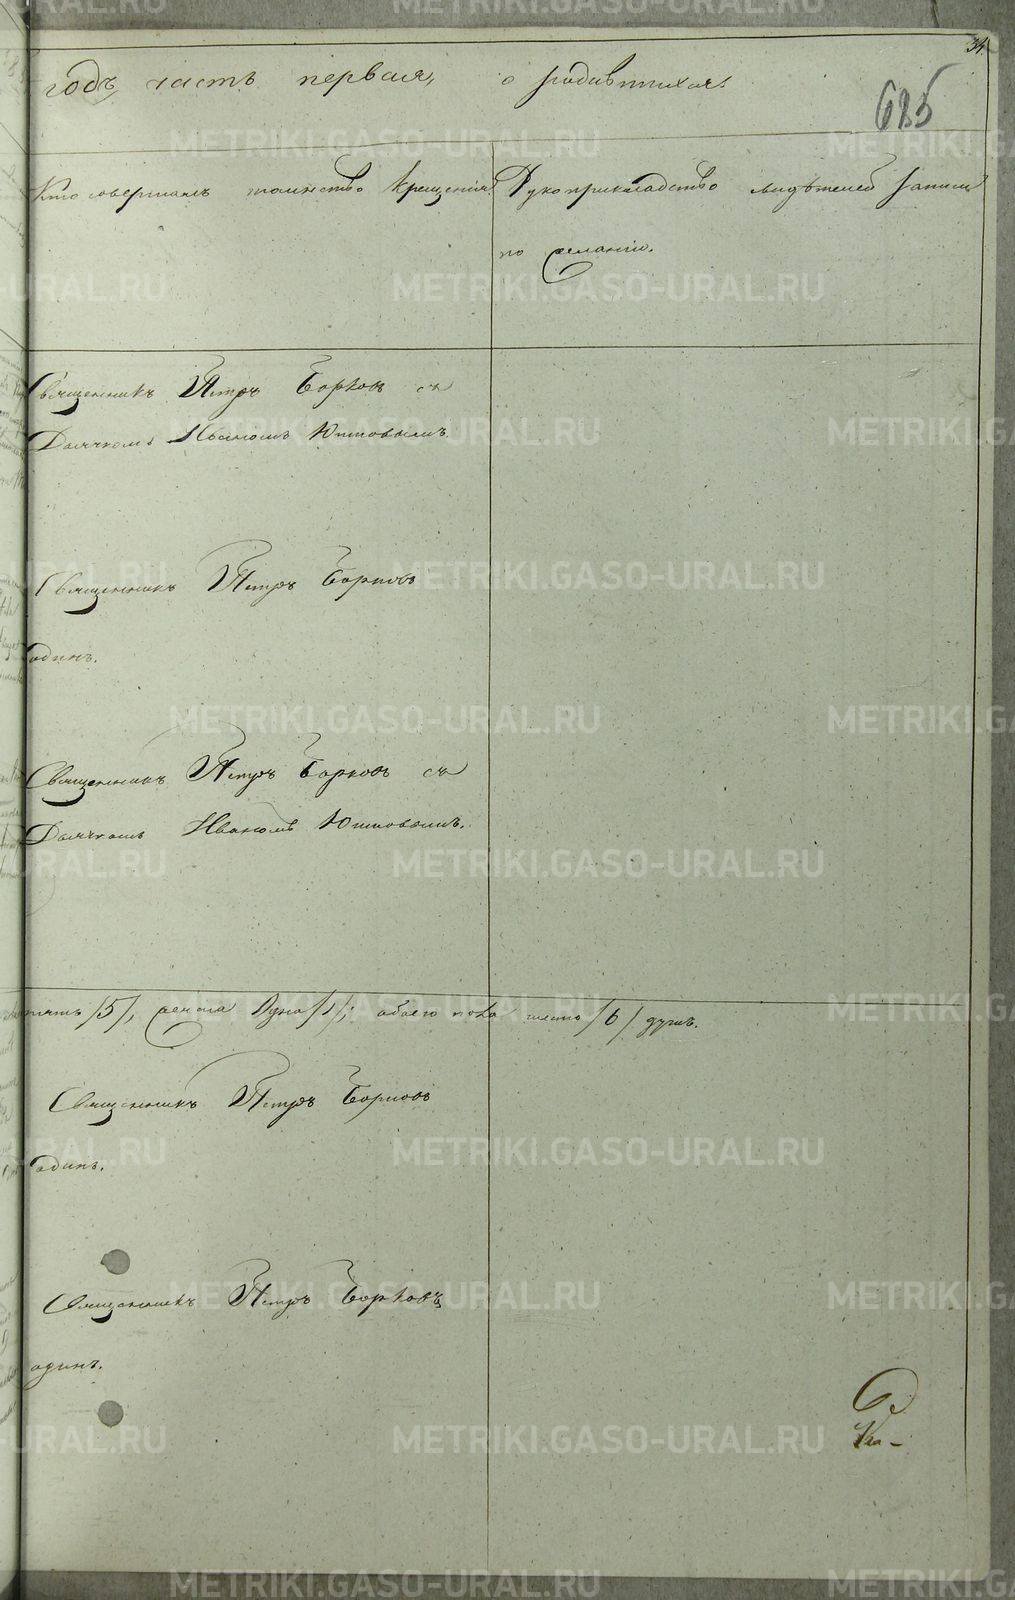 34.
годъ, часть первая, о родившихся.
685
Кто совершалъ таинство крещенія
Рукоприкладство свидѣтелей записи
по желанію.
Священникъ Петръ Борковъ съ
Дьячкомъ Иваномъ Ютповымъ
Священникъ Петръ Борковъ
одинъ.
Священникъ Петръ Борковъ съ
Дьячкомъ Иваномъ Ютповымъ.
пять /5/, женска Одна /1/; обоего пола шесть /6/ душъ.
Священникъ Петръ Борковъ
одинъ.
Священникъ Петръ Борковъ
одинъ.
METRIKI.GASO-URAL.RU